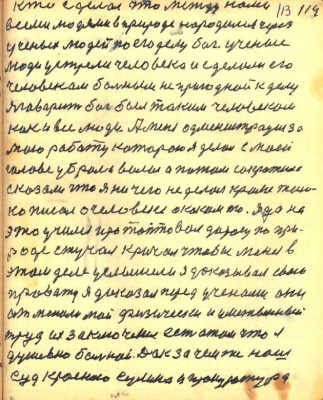 кто сделал это между нами 113 114
всеми людями в природе народился через
ученых людей по его делу бог. ученые
люди устрели человека и сделали его
человеком больным не пригодной к делу
я говарить бог был таким человеком
как и все люди. А меня администрация за
мою работу которою я делал с моей
головы убрала волоса а потом сократила
сказали что я ни чего не делал кроме толь-
ко писал о человеке о каком то. Я да на
это учился протоптовал дорогу по при-
роде стучал кричал чтобы меня в
этом деле услышили я доказывал свою
правоту я доказал перед учеными они
отметили мой физически и умственный
труд их заключение есть о том что я
душевно больной. Так зачем же наш
суд Красного Сулина и прокуратура